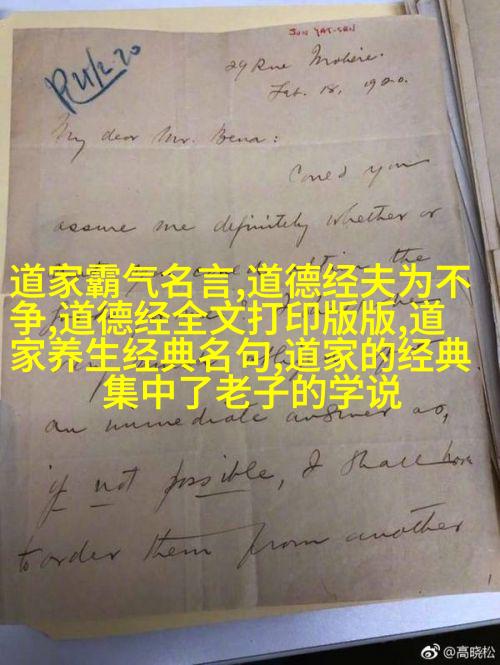 SUN YAT-SEN
29 Rue Molière.
Feb. 18, 1920.
My dear Mr. Bena:
Could you
assure me definitely whether or
道家霸气名言,道德经夫为不
争,道德经全文打印版版,道
家养生经典名句,道家的经典
集中了老子的学说
an immediate answer as,
if not possible, I shall have
to order them from another
@高晓松